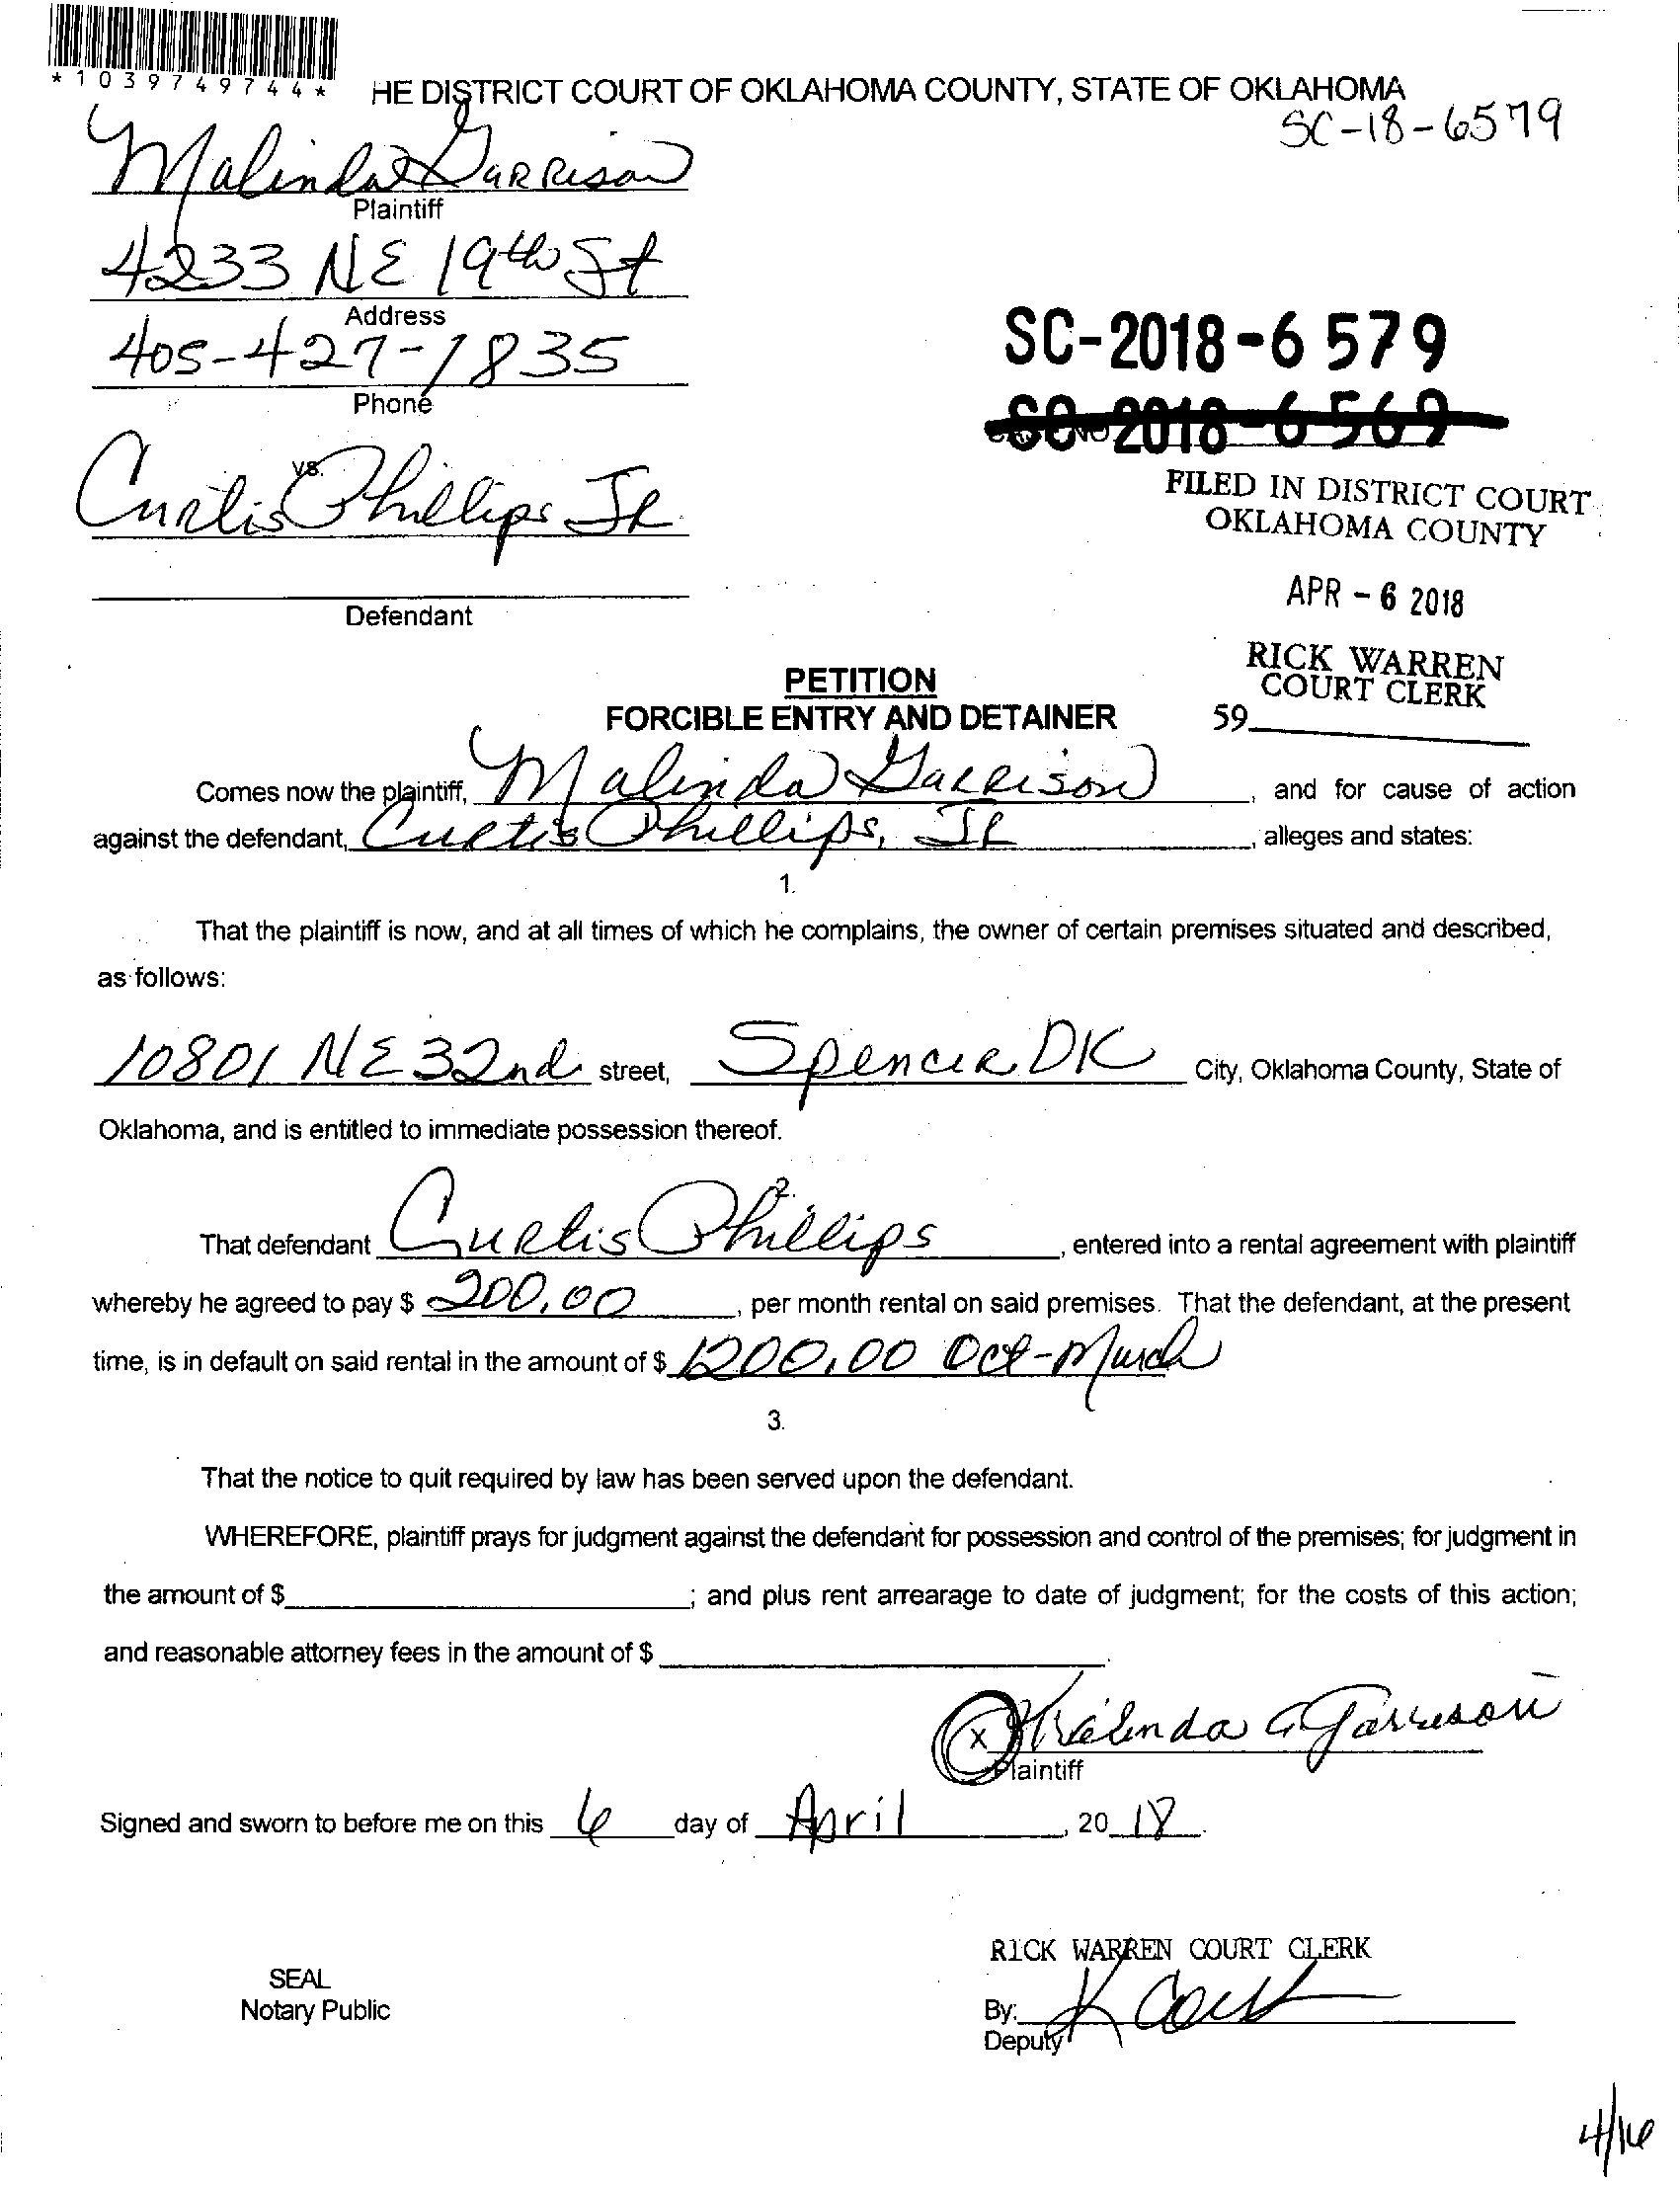 *1039749744*
HE DISTRICT COURT OF OKLAHOMA COUNTY, STATE OF OKLAHOMA
SC-18-6579
Malinda Garrison
Plaintiff
4233 NE 19th St
Address
405-427-7835
Phone
SC-2018-6 579
SC-2018-6 569
FILED IN DISTRICT COURT
OKLAHOMA COUNTY
vs.
Curtis Phillips JR
APR - 6 2018
Defendant
RICK WARREN
COURT CLERK
59
PETITION
FORCIBLE ENTRY AND DETAINER
Comes now the plaintiff, Malinda Garrison, and for cause of action
against the defendant, Curtis Phillips, JR, alleges and states:
1.
That the plaintiff is now, and at all times of which he complains, the owner of certain premises situated and described,
as follows:
10801 NE 32nd street, Spencer OK City, Oklahoma County, State of
Oklahoma, and is entitled to immediate possession thereof.
2.
That defendant Curtis Phillips, entered into a rental agreement with plaintiff
whereby he agreed to pay $ 200.00, per month rental on said premises. That the defendant, at the present
time, is in default on said rental in the amount of $ 1200.00 Oct-March
3.
That the notice to quit required by law has been served upon the defendant.
WHEREFORE, plaintiff prays for judgment against the defendant for possession and control of the premises; for judgment in
the amount of $ ; and plus rent arrearage to date of judgment; for the costs of this action;
and reasonable attorney fees in the amount of $ .
X Malinda G Garrison
Plaintiff
Signed and sworn to before me on this 6 day of April, 20 18.
RICK WARREN COURT CLERK
SEAL
Notary Public
By:
Deputy
4/16